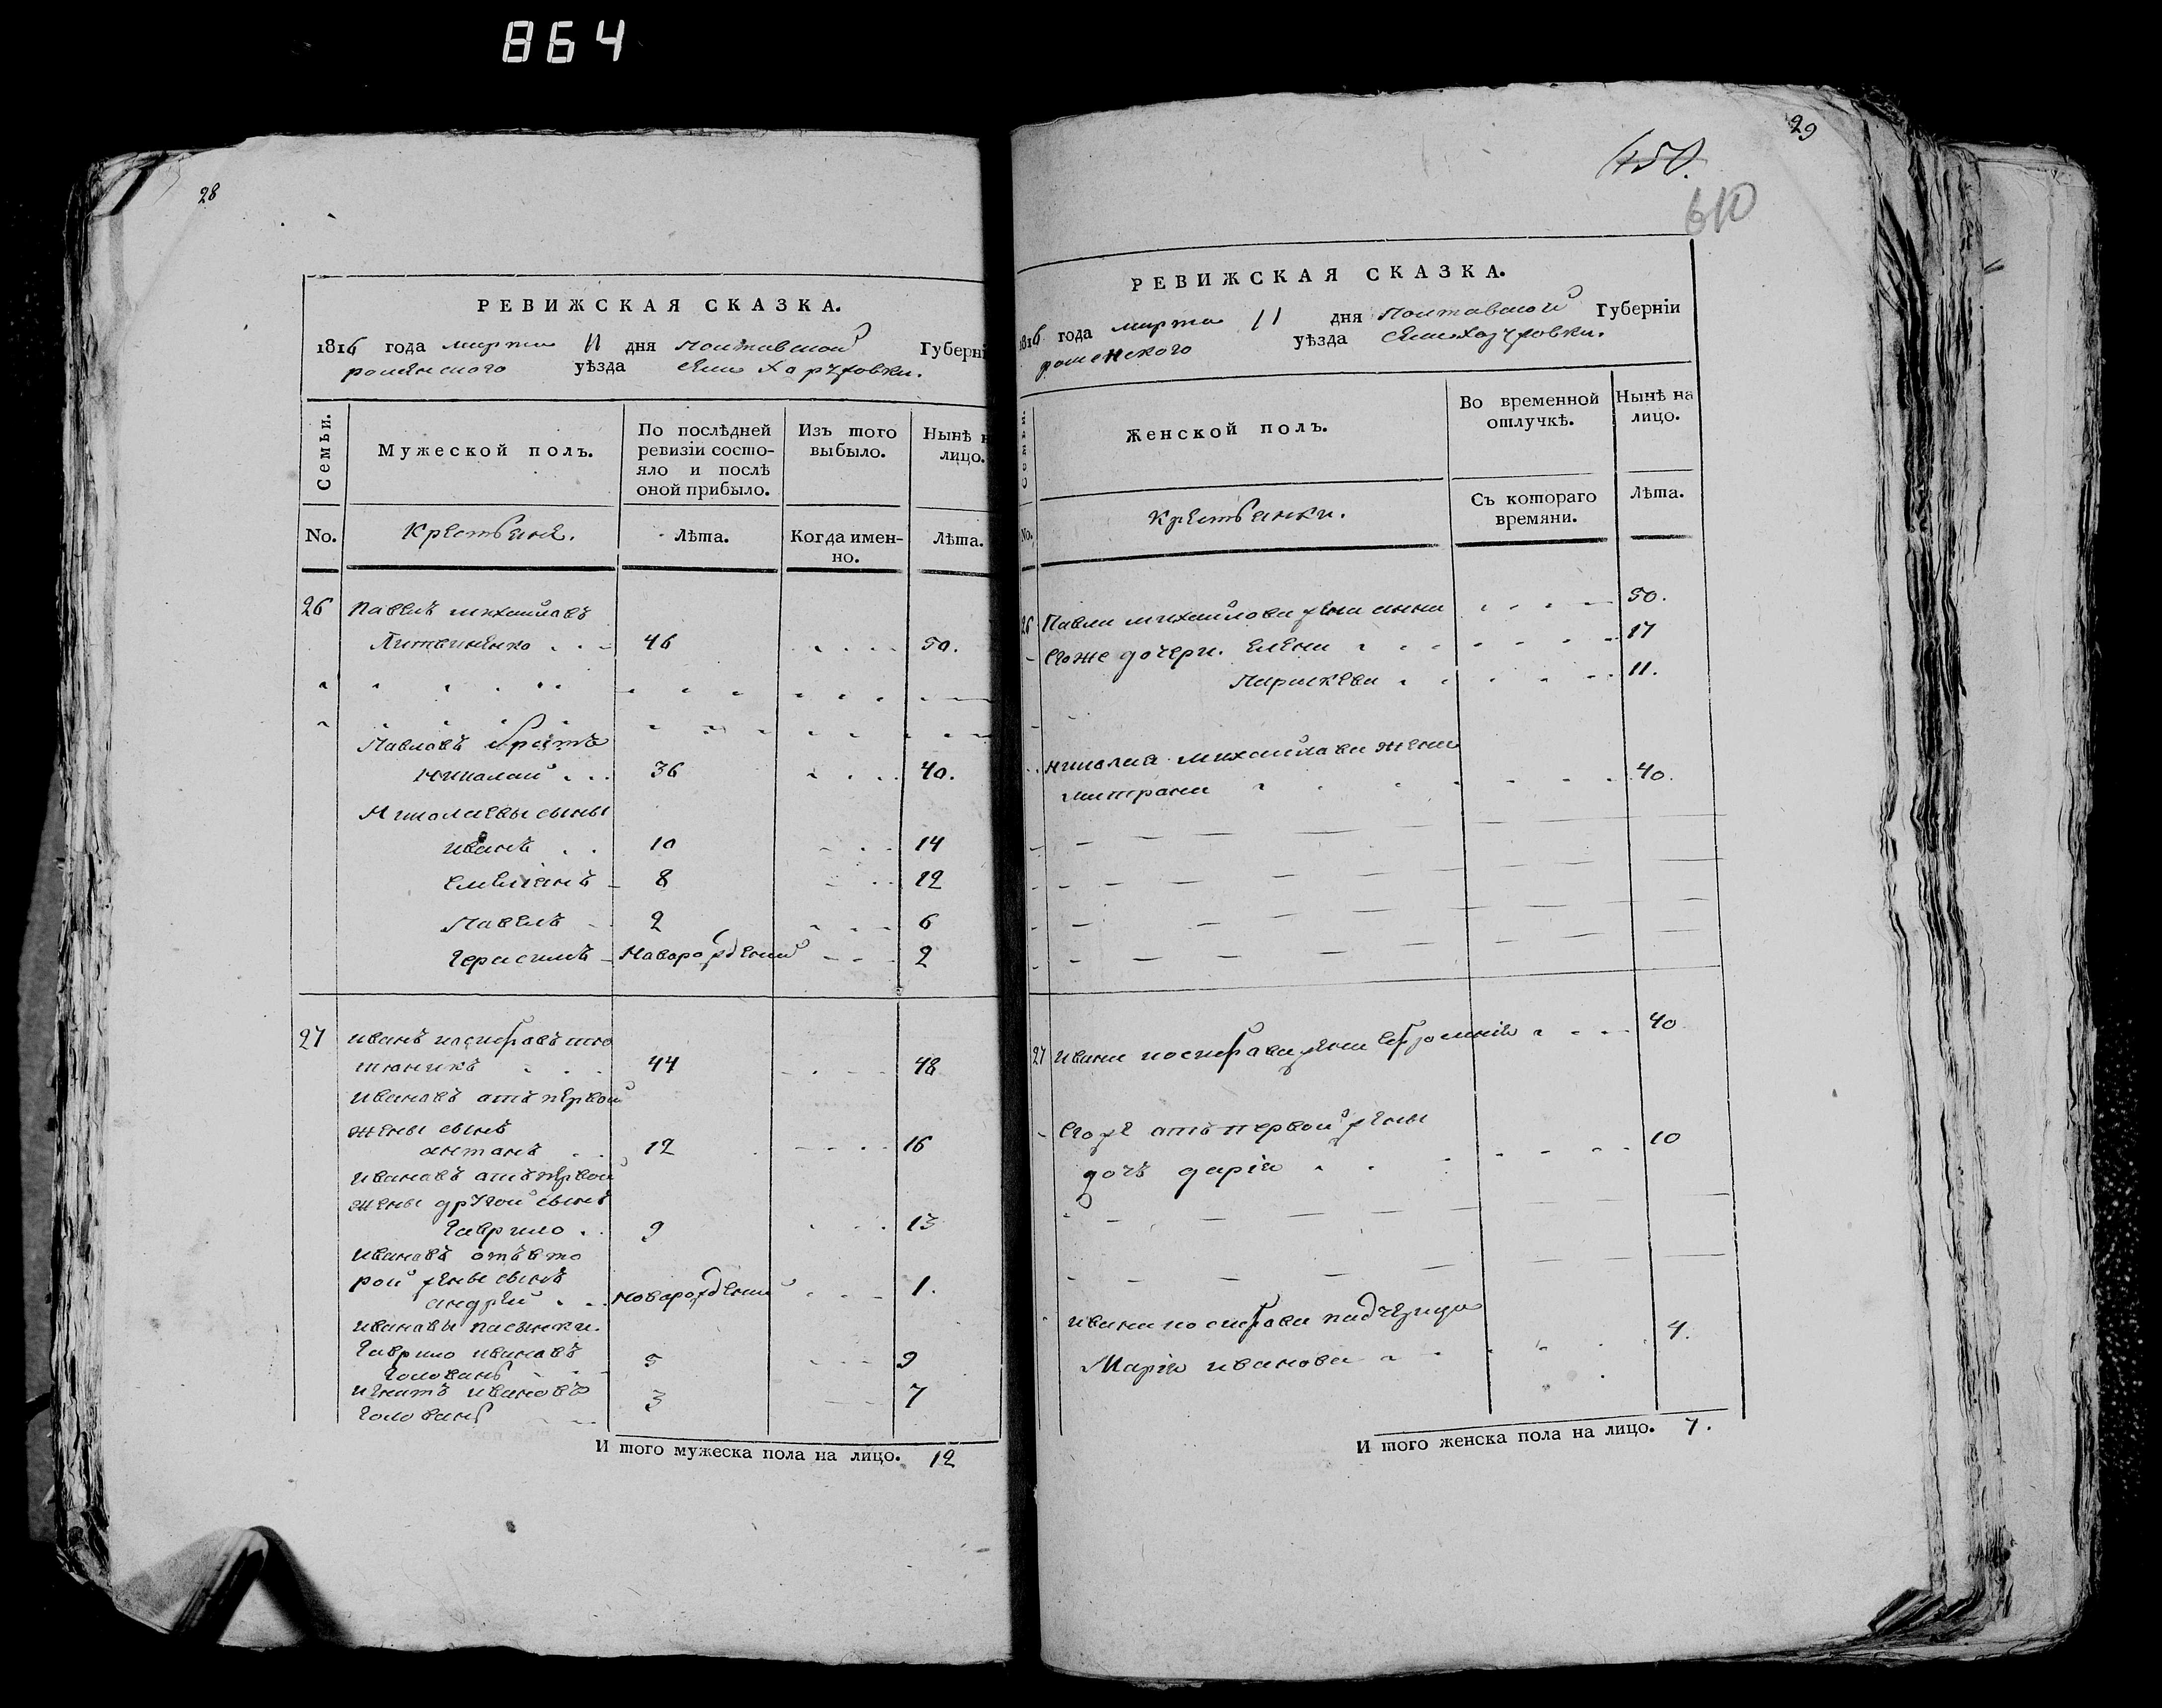 864
28
РЕВИЖСКАЯ СКАЗКА.
1816 года марта 11 дня Полтавской Губерні
роменского уѣзда села
Семьи.
Мужеской полъ.
По послѣдней ревизіи состо-
яло и послѣ
оной прибыло.
Изъ того
выбыло.
Нынѣ н
лицо.
No.
Крестьяне.
Лѣта.
Когда имен-
но.
Лѣта.
26 Павелъ михайлавъ
Литвиненко 46 50.
Павлавъ братъ
николай 36 40.
Николаевы сыны
иванъ 10 14
емелианъ 8 12
Павелъ 2 6
герасимъ Новорождений 2
27 иванъ иосифавъ
44 48
ивановъ атъ первой
жены сынъ
антанъ 12 16
ивановъ атъ первой
жены другой сынъ
гаврило 9 13
ивановъ отъ вто
рой жены сынъ
андрей новорождений 1.
ивановы пасынки.
гаврило ивановъ
голованъ 5 9
игнатъ ивановъ
голованъ 3 7
И того мужеска пола на лицо. 12
29
450.
610
РЕВИЖСКАЯ СКАЗКА.
1816 года марта 11 дня Полтавской Губерніи
роменского уѣзда села
Семьи.
Женской полъ.
Во временной
отлучкѣ.
Нынѣ на
лицо.
No.
Крестьянки.
Съ котораго
времяни.
Лѣта.
26 Павла михайлова жена анна 50.
егоже дочери. елена 17
Параскева 11.
николая михайлава жена
40.
27 ивана иосифава жена 40
егоже атъ первой жены
дочъ дарія 10
ивана иосифава падчерица
Марія иванова 4.
И того женска пола на лицо. 7.